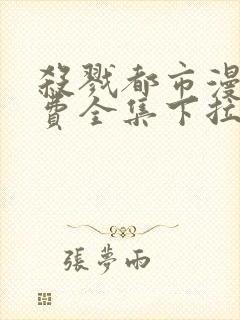 殺戮都市漫
費全集下拉
張夢雨